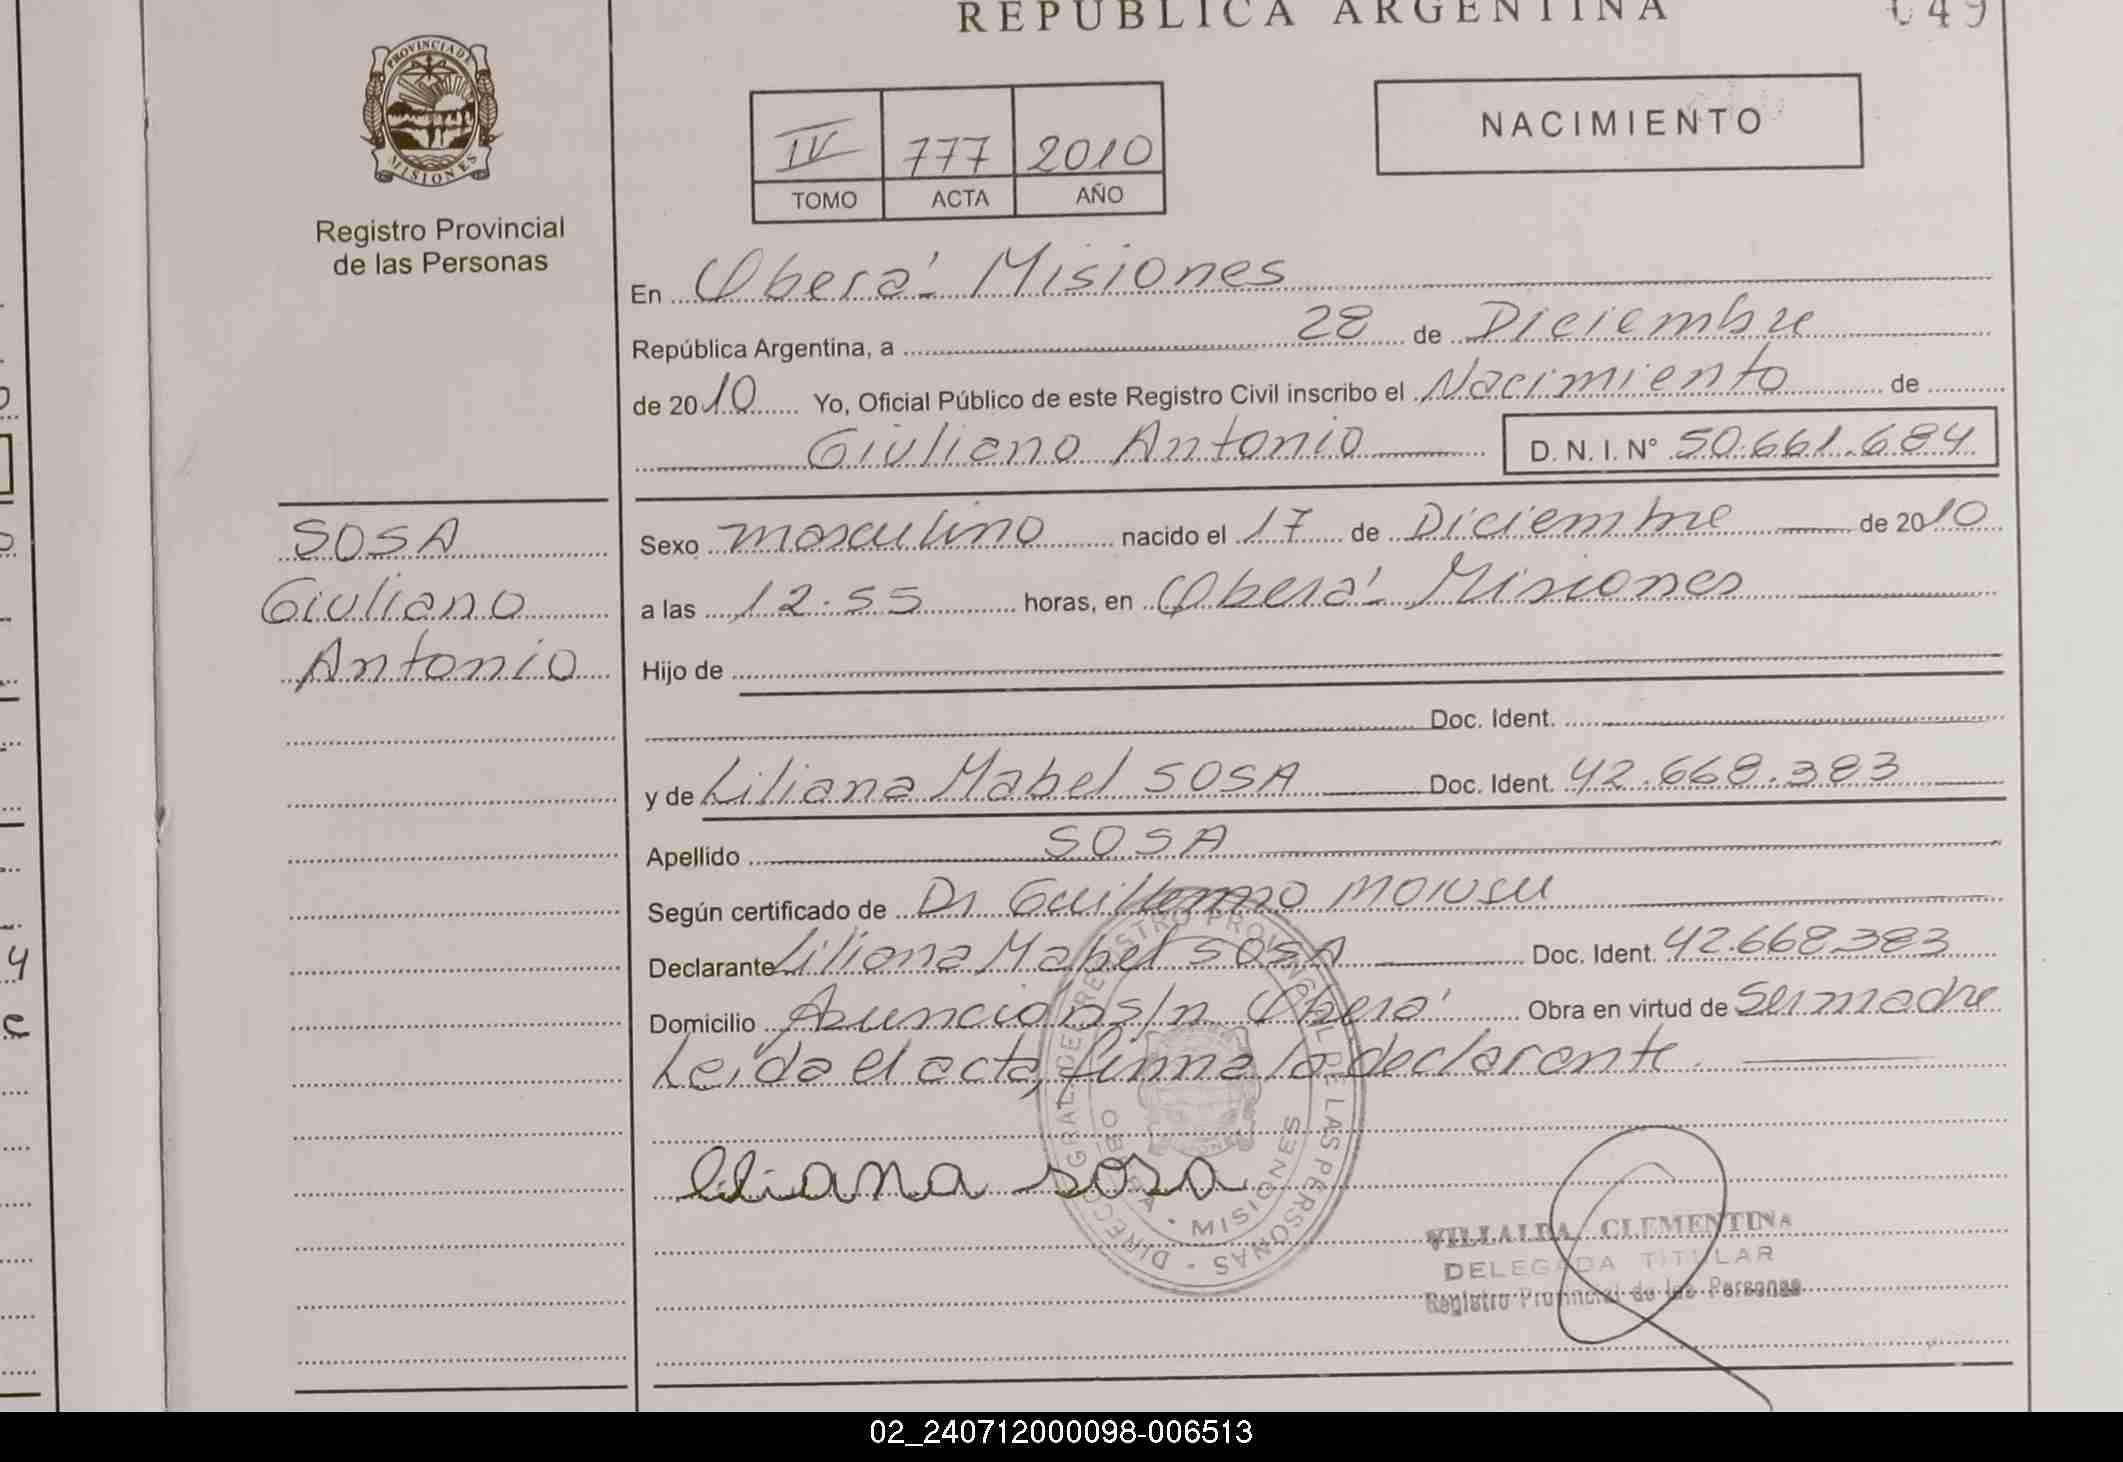 REPUBLICA ARGENTINA
049
PROVINCIA DE
MISIONES
Registro Provincial
de las Personas
IV 777 2010
TOMO ACTA AÑO
NACIMIENTO
En Oberá - Misiones
República Argentina, a 28 de Diciembre
de 2010 Yo, Oficial Público de este Registro Civil inscribo el Nacimiento de
Giuliano Antonio D. N. I. N° 50.661.684
SOSA
Giuliano
Antonio
Sexo masculino nacido el 17 de Diciembre de 2010
a las 12.55 horas, en Oberá - Misiones
Hijo de
Doc. Ident.
y de Liliana Mabel SOSA Doc. Ident. 42.668.383
Apellido SOSA
Según certificado de Dr Guillermo
Declarante Liliana Mabel SOSA Doc. Ident. 42.668.383
Domicilio Asunción s/n Oberá Obra en virtud de Ser madre
Leída el acta, firma la declarante.
liliana sosa
DIRECC. GRAL. DE REGISTRO PROVINCIAL DE LAS PERSONAS
MISIONES
VILLALBA CLEMENTINA
DELEGADA TITULAR
Registro Provincial de las Personas
4
c
02_240712000098-006513